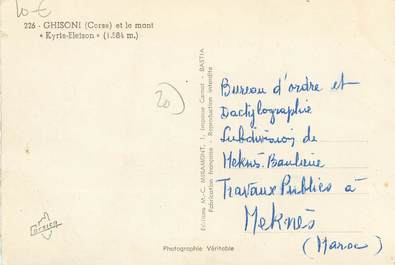 10 €
226 - GHISONI (Corse) et le mont
« Kyrie-Eleison » (1.584 m.)
20
Editions M.-C. MIRAMONT, 1, Impasse Carnot - BASTIA
Fabrication française - Reproduction interdite
Bureau d'ordre et
Dactylographie
Subdivision de
Meknès-Banlieue
Travaux Publics à
Meknès
(Maroc)
corsica
Photographie Véritable